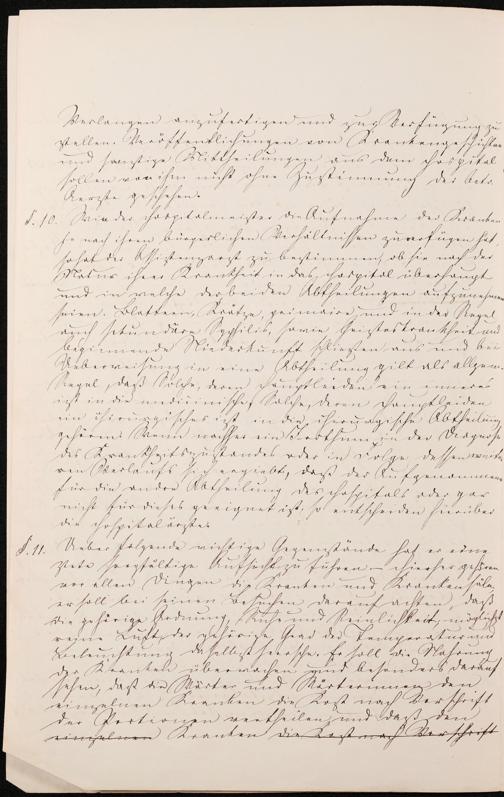 Verlangen anzufertigen und zur Verfügung zu
stellen. Veröffentlichungen von Krankengeschichten
und sonstige Mittheilungen aus dem Hospital
sollen von ihm nicht ohne Zustimmung der betr.
Aerzte geschehen.
§. 10. Wie der Hospitalmeister die Aufnahme der Kranken
je nach ihren bürgerlichen Verhältnissen zu verfügen hat,
so hat der Assistenzarzt zu bestimmen, ob sie nach der
Natur ihrer Krankheit in das Hospital überhaupt
und in welche der beiden Abtheilungen aufzunehmen
seien. Blattern, Krätze, primaire und in der Regel
auch secundäre Syphilis, sowie Geisteskrankheit und
beginnende Niederkunft schließen aus und bei
Ueberweisung in eine Abtheilung gilt als allgem.
Regel, daß Solche, deren Hauptleiden ein inneres
ist in die medicinische, Solche, deren Hauptleiden
ein chirurgisches ist in die chirurgische Abtheilung
gehören. Wenn nachher ein Irrthum in der Diagnose
des Krankheitszustandes oder in Folge dessen
Verlaufs sich ergiebt, daß der Aufgenommene
für die andre Abtheilung des Hospitals oder gar
nicht für dieses geeignet ist, so entscheiden hierüber
die Hospitalärzte.
§. 11. Ueber folgende wichtige Gegenstände hat er eine
stete sorgfältige Aufsicht zu führen – hierher gehören
vor allen Dingen die Kranken und Krankensäle,
er soll bei seinen Besuchen darauf achten, daß
die gehörige Ordnung, Ruhe und Reinlichkeit, möglichst
reine Luft, der gehörige Grad der Temperatur und
Beleuchtung daselbst herrsche. Er soll die Nahrung
der Kranken überwachen und besonders darauf
sehen, daß die Wärter und Wärterinnen den
einzelnen Kranken die Kost nach Vorschrift
der Portionen vertheilen, und daß den
einzelnen Kranken die Kost nach Vorschrift